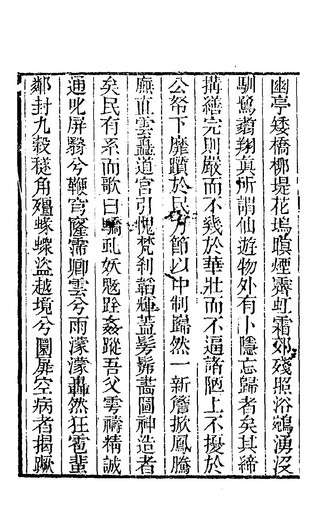 幽亭矮橋柳堤花塢暝煙霽虹霜郊殘照浴鷗湧沒
馴鷺翥翔真所謂仙遊物外有卜隱忘歸者矣其締
搆繕完則嚴而不幾於華壯而不逼諸陋上不擾於
公帑下靡蠹於民力節以中制巋然一新簷掀鳳騰
廡直雲矗道宮引愧梵刹韜輝蓋髣髴畵圖神造者
矣民有系而歌曰驕虬妖魃銓姦蹤吾父雩禱精誠
通叱屏騎兮鞭宮窿霈卿雲兮雨濛濛轟然狂雹蜚
鄰封九穀穟角殭螓蠑盜越境兮圜扉空病者揭蹶